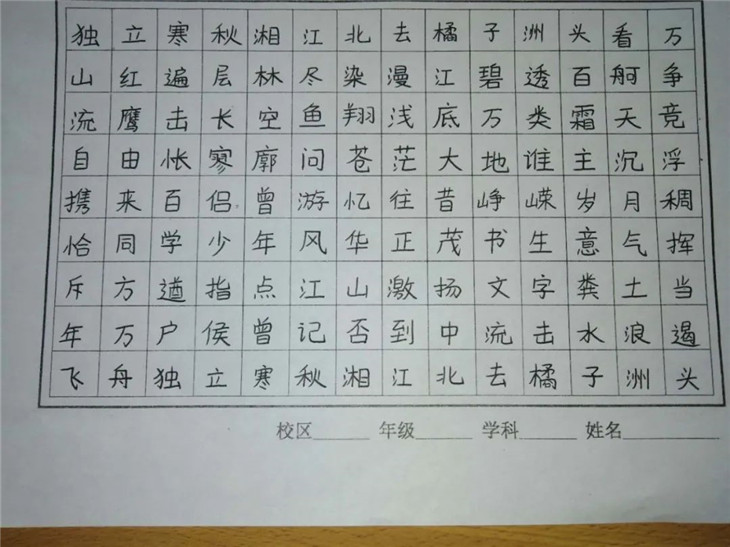 独立寒秋湘江北去橘子洲头看万
山红遍层林尽染漫江碧透百舸争
流鹰击长空鱼翔浅底万类霜天竞
自由怅寥廓问苍茫大地谁主沉浮
携来百侣曾游忆往昔峥嵘岁月稠
恰同学少年风华正茂书生意气挥
斥方遒指点江山激扬文字粪土当
年万户侯曾记否到中流击水浪遏
飞舟独立寒秋湘江北去橘子洲头
校区______ 年级______ 学科______ 姓名__________